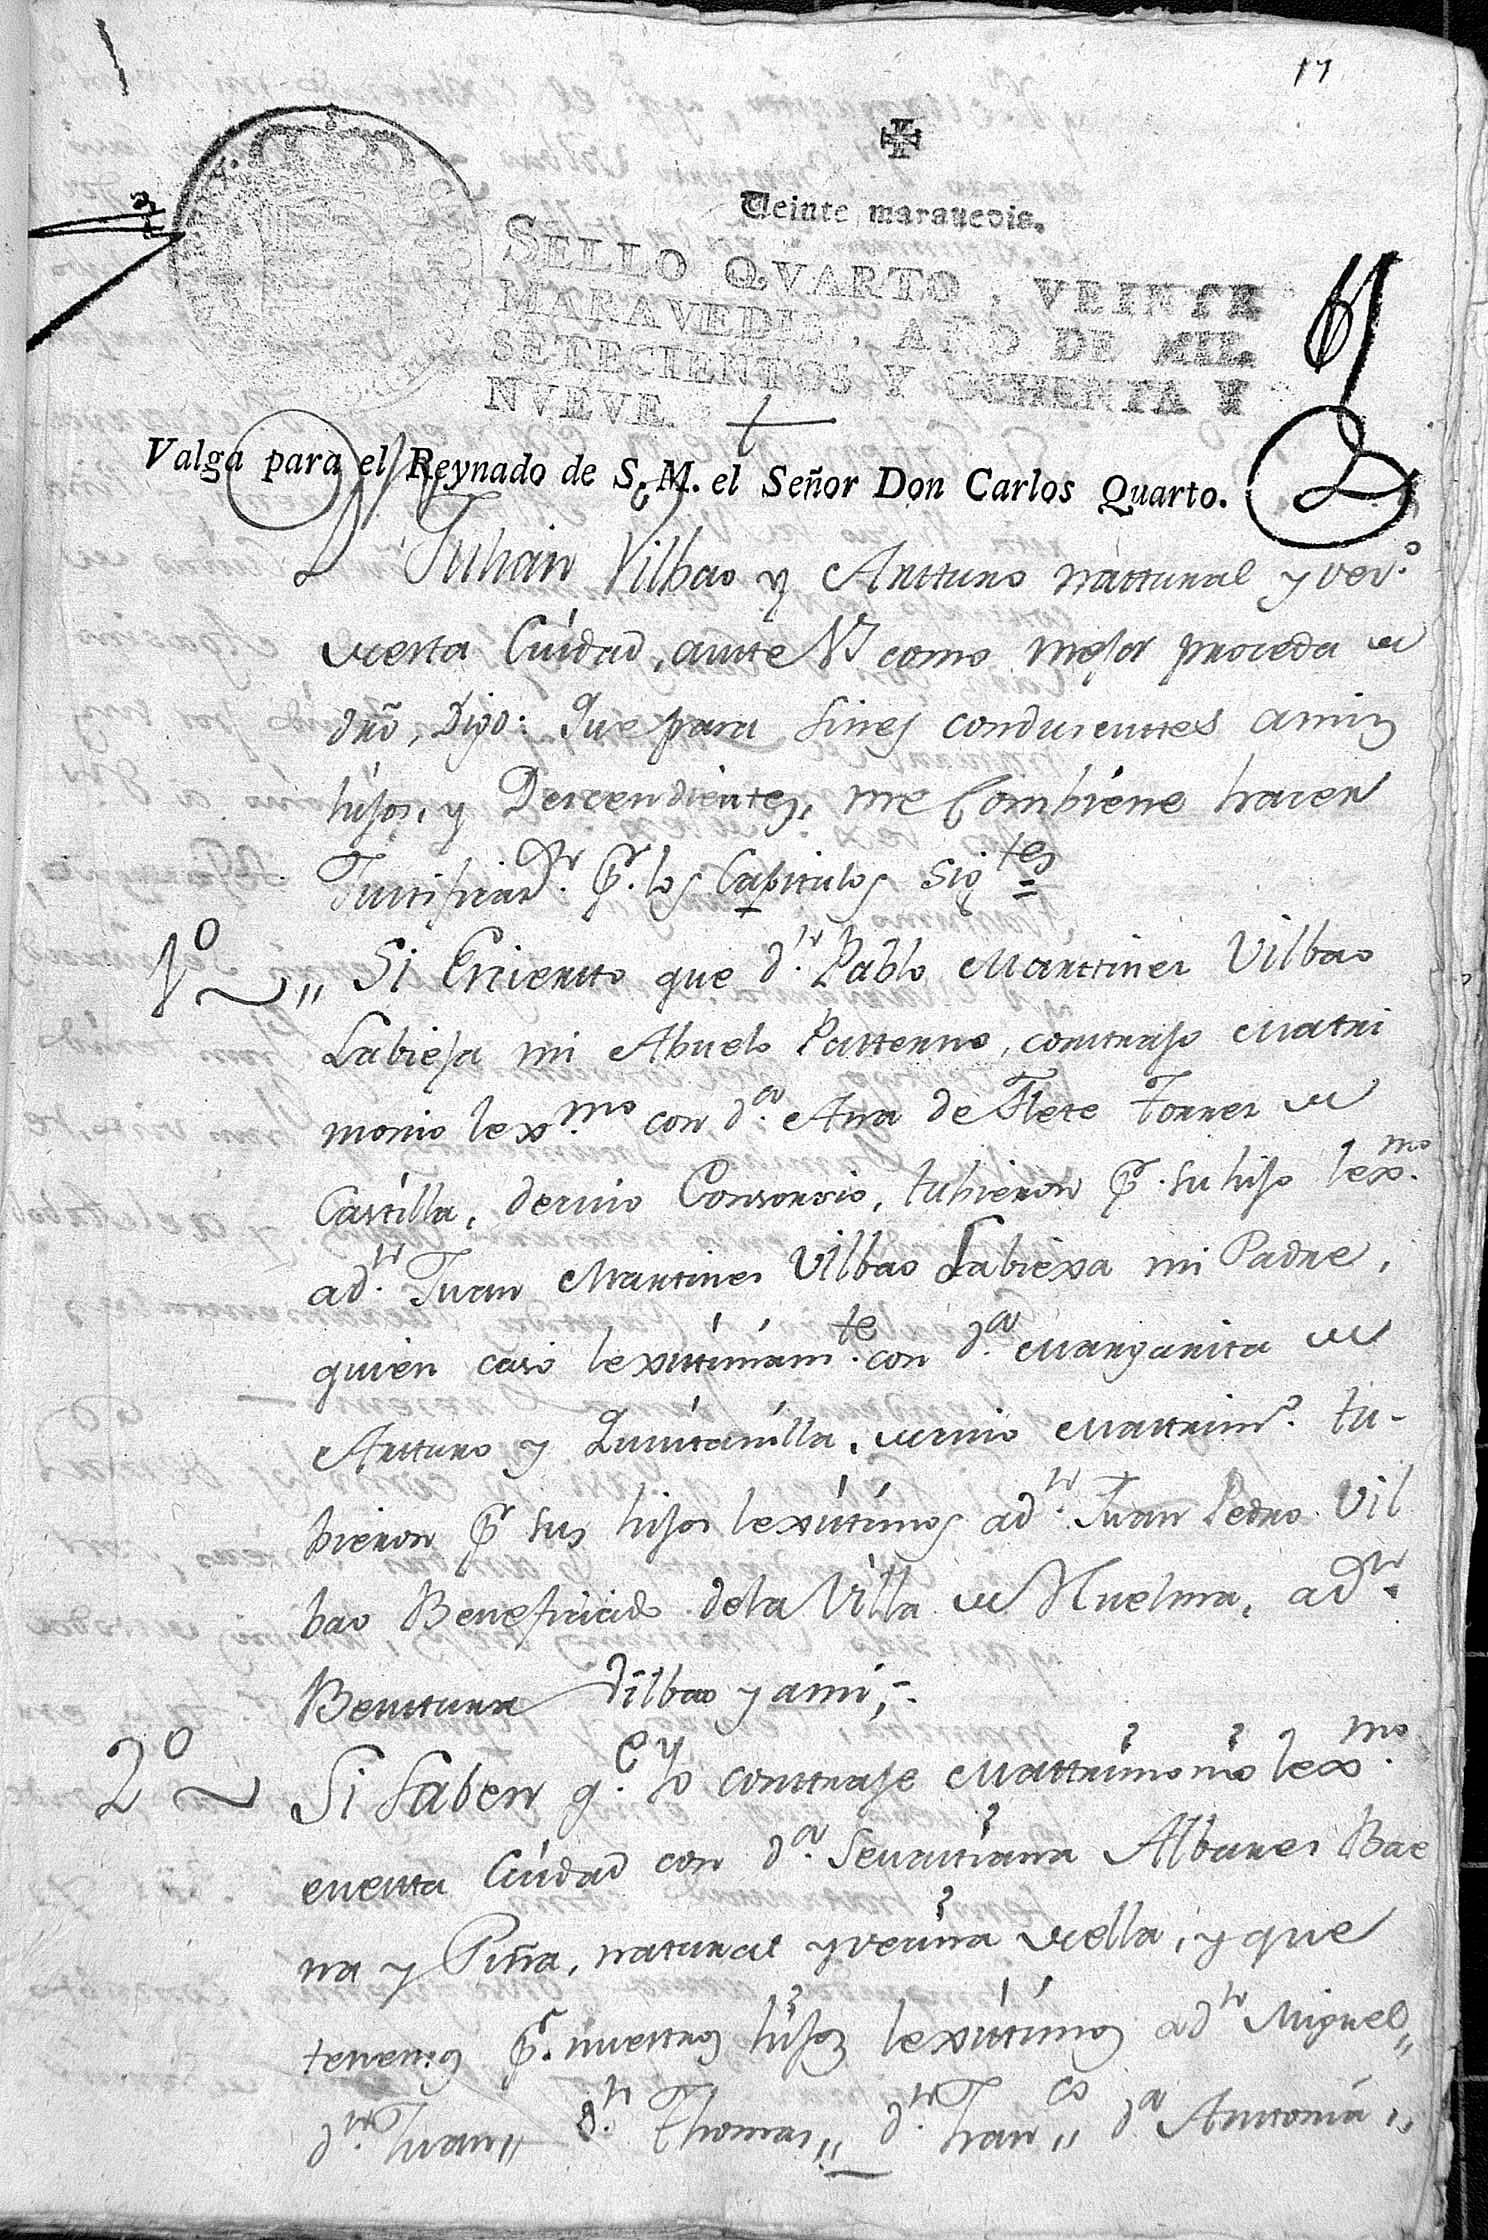 17
Veinte maravedis.
SELLO QVARTO, VEINTE
MARAVEDIS, AÑO DE MIL
SETECIENTOS Y OCHENTA Y
NVEVE.
Valga para el Reynado de S. M. el Señor Don Carlos Quarto.
Julian Vilbao y Antturo natturael y vez.º
de esta Ciudad, antte V.s como mejor proceda de
dro, Digo: Que para fines condusenttes a mis
hijos, y Descendientes, me Combiene hacer
Justificaz.on p.r los Capitulos sig.tes =
1º Si Es cierto que d.n Pablo Marttines Vilbao
Labiesa mi Abuelo Patterno, contrajo Matri
monio lex.mo con d.a Ana de Flete Torres de
Castilla, de cuio Consorcio, tubieron p.r su hijo lex.mo
a d.n Juan Martines Vilbao Labiexa mi Padre,
quien caso lexitimam.te con d.a Margarita de
Antturo y Quintanilla, de cuio Mattrim.o tu-
bieron p.r sus hijos lexitimos a d.n Juan Pedro Vil
bao Beneficiado de la Villa de Huelma, a d.n
Benttura Vilbao y a mi,-.
2º Si Saben q.e Yo conttraje Mattrimonio lex.mo
en estta Ciudad con d.a Sevastiana Albares Bae
na y Piña, natural y vecina de ella, y que
tenemos p.r nuestros hijos lexitimos a d.n Miguel,,
d.n Juan,, d.n Thomas,, d.n Fran.co,, d.a Anttonia,,